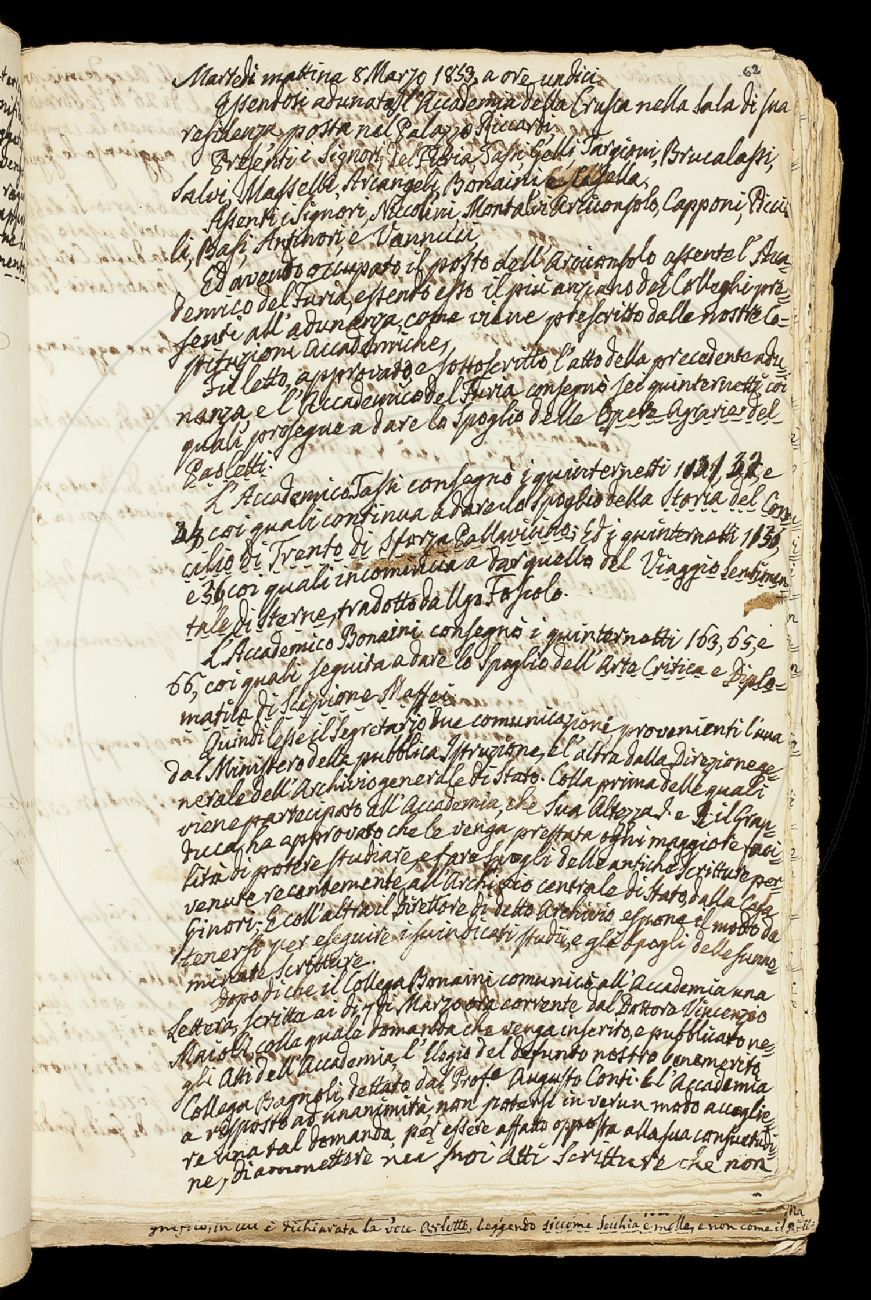 62
Martedì mattina 8 Marzo 1853, a ore undici
Essendosi adunata l'Accademia della Crusca nella Sala di sua
residenza posta nel Palazzo Riccardi
Presenti i Signori, Del Furia, Tassi, Gelli, Targioni, Brucalassi,
Salvi, Masselli, Arcangeli, Bonaini e Casella,
Assenti i Signori, Niccolini, Montalvi Arciconsolo, Capponi, Becc
li, Basi, Antinori e Vannucci,
Ed avendo occupato il posto dell'Arciconsolo assente l'Acca=
demico del Furia, essendo esso il più anziano dei Colleghi pre=
senti all'adunanza, come viene prescritto dalle nostre Co=
stituzioni Accademiche,
Fu letto, approvato, e sottoscritto l'atto della precedente adu=
nanza e l'Accademico del Furia consegnò sei quinternetti, coi
quali prosegue a dare lo Spoglio delle Opere Agrarie del
Paoletti.
L'Accademico Tassi consegnò i quinternetti 131, 32, e
34, coi quali continua a dare lo spoglio della Storia del Con=
cilio di Trento di Sforza Pallavicino; Ed i quinternetti 135,
e 36, coi quali incomincia a dar quello del Viaggio Sentimen
tale di Sterne, tradotto da Ugo Foscolo.
L'Accademico Bonaini consegnò i quinternetti 163, 65, e
66, coi quali seguita a dare lo Spoglio dell'Arte Critica e Diplo=
matica di Scipione Maffei
Quindi lesse il Segretario due comunicazioni provenienti l'una
dal Ministero della pubblica Istruzione, e l'altra dalla Direzione ge=
nerale dell'Archivio generale di Stato. Colla prima delle quali
viene partecipato all'Accademia, che Sua Altezza I. e R. il Gran=
duca, ha approvato che le venga prestata ogni maggiore faci=
lità di potere studiare, e fare spogli delle antiche Scritture per=
venute recentemente all'Archivio centrale di Stato, dalla Casa
Ginori; E coll'altra il Direttore di detto Archivio, espone il modo da
tenersi per eseguire i suindicati studii, e gli spogli delle sunno=
minate Scritture.
Dopo di che il Collega Bonaini comunicò all'Accademia una
Lettera, scritta ai dì 7 di Marzo ora corrente dal Dottore Vincenzio
Maioli, colla quale domanda che venga inserito, e pubblicato ne=
gli Atti dell'Accademia, l'Elogio del defunto nostro benemerito
Collega Bagnoli, dettato dal Prof.e Augusto Conti. E l'Accademia
a risposto ad unanimità, non potersi in verun modo accoglie=
re una tal domanda, per essere affatto opposta alla sua consuetudi=
ne, di ammettere nei suoi Atti Scritture che non
Ma
in cui è dichiarata la voce Arlotto, leggendo siccome Secchia è molle, e non come il